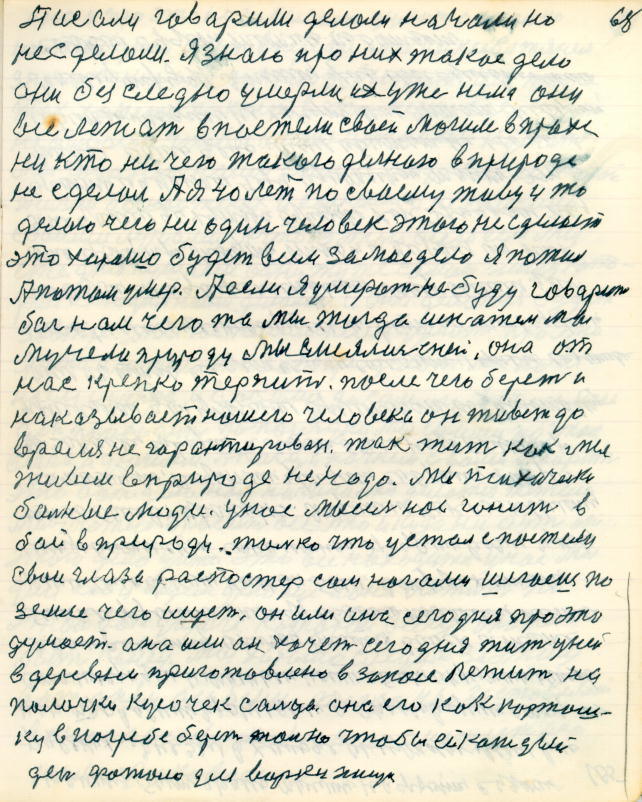 Писали говарили делоли начали но 68
несделоли. Я знаю про них такое дело
они бес следно умерли их уже нема они
все лежат в постели своей могиле в прахе
ни кто ни чего такого делного в природе
не сделол. А я 40 лет по своему живу и то
делою чего ни один человек этого не сделоет
это харашо будет всем за моедело я пожил
А потом умер. А если я умерат не буду говарит
бог нам чегота мы тогда искатем мы
мучели природу мы смеялис сней. она от
нас крепко терпит. после чего берет и
наказывает нашего человека он живет до
время не гарантирован. так жит как мы
живем в природе не надо. мы психически
болные люди. у нас мысля нас гонит в
бой в природу. толко что устал с постели
свои глаза распостер сам ногами шигаеш по
земле чего ищет. он или она сегодня про это
думоет. она или он хочет сегодня жит у ней
в деревни приготовлено в запасе Лежит на
полочки кусочек салца она его как картош-
ку в погребе берет толко чтобы ей каждый
ден фатало для варки пищи